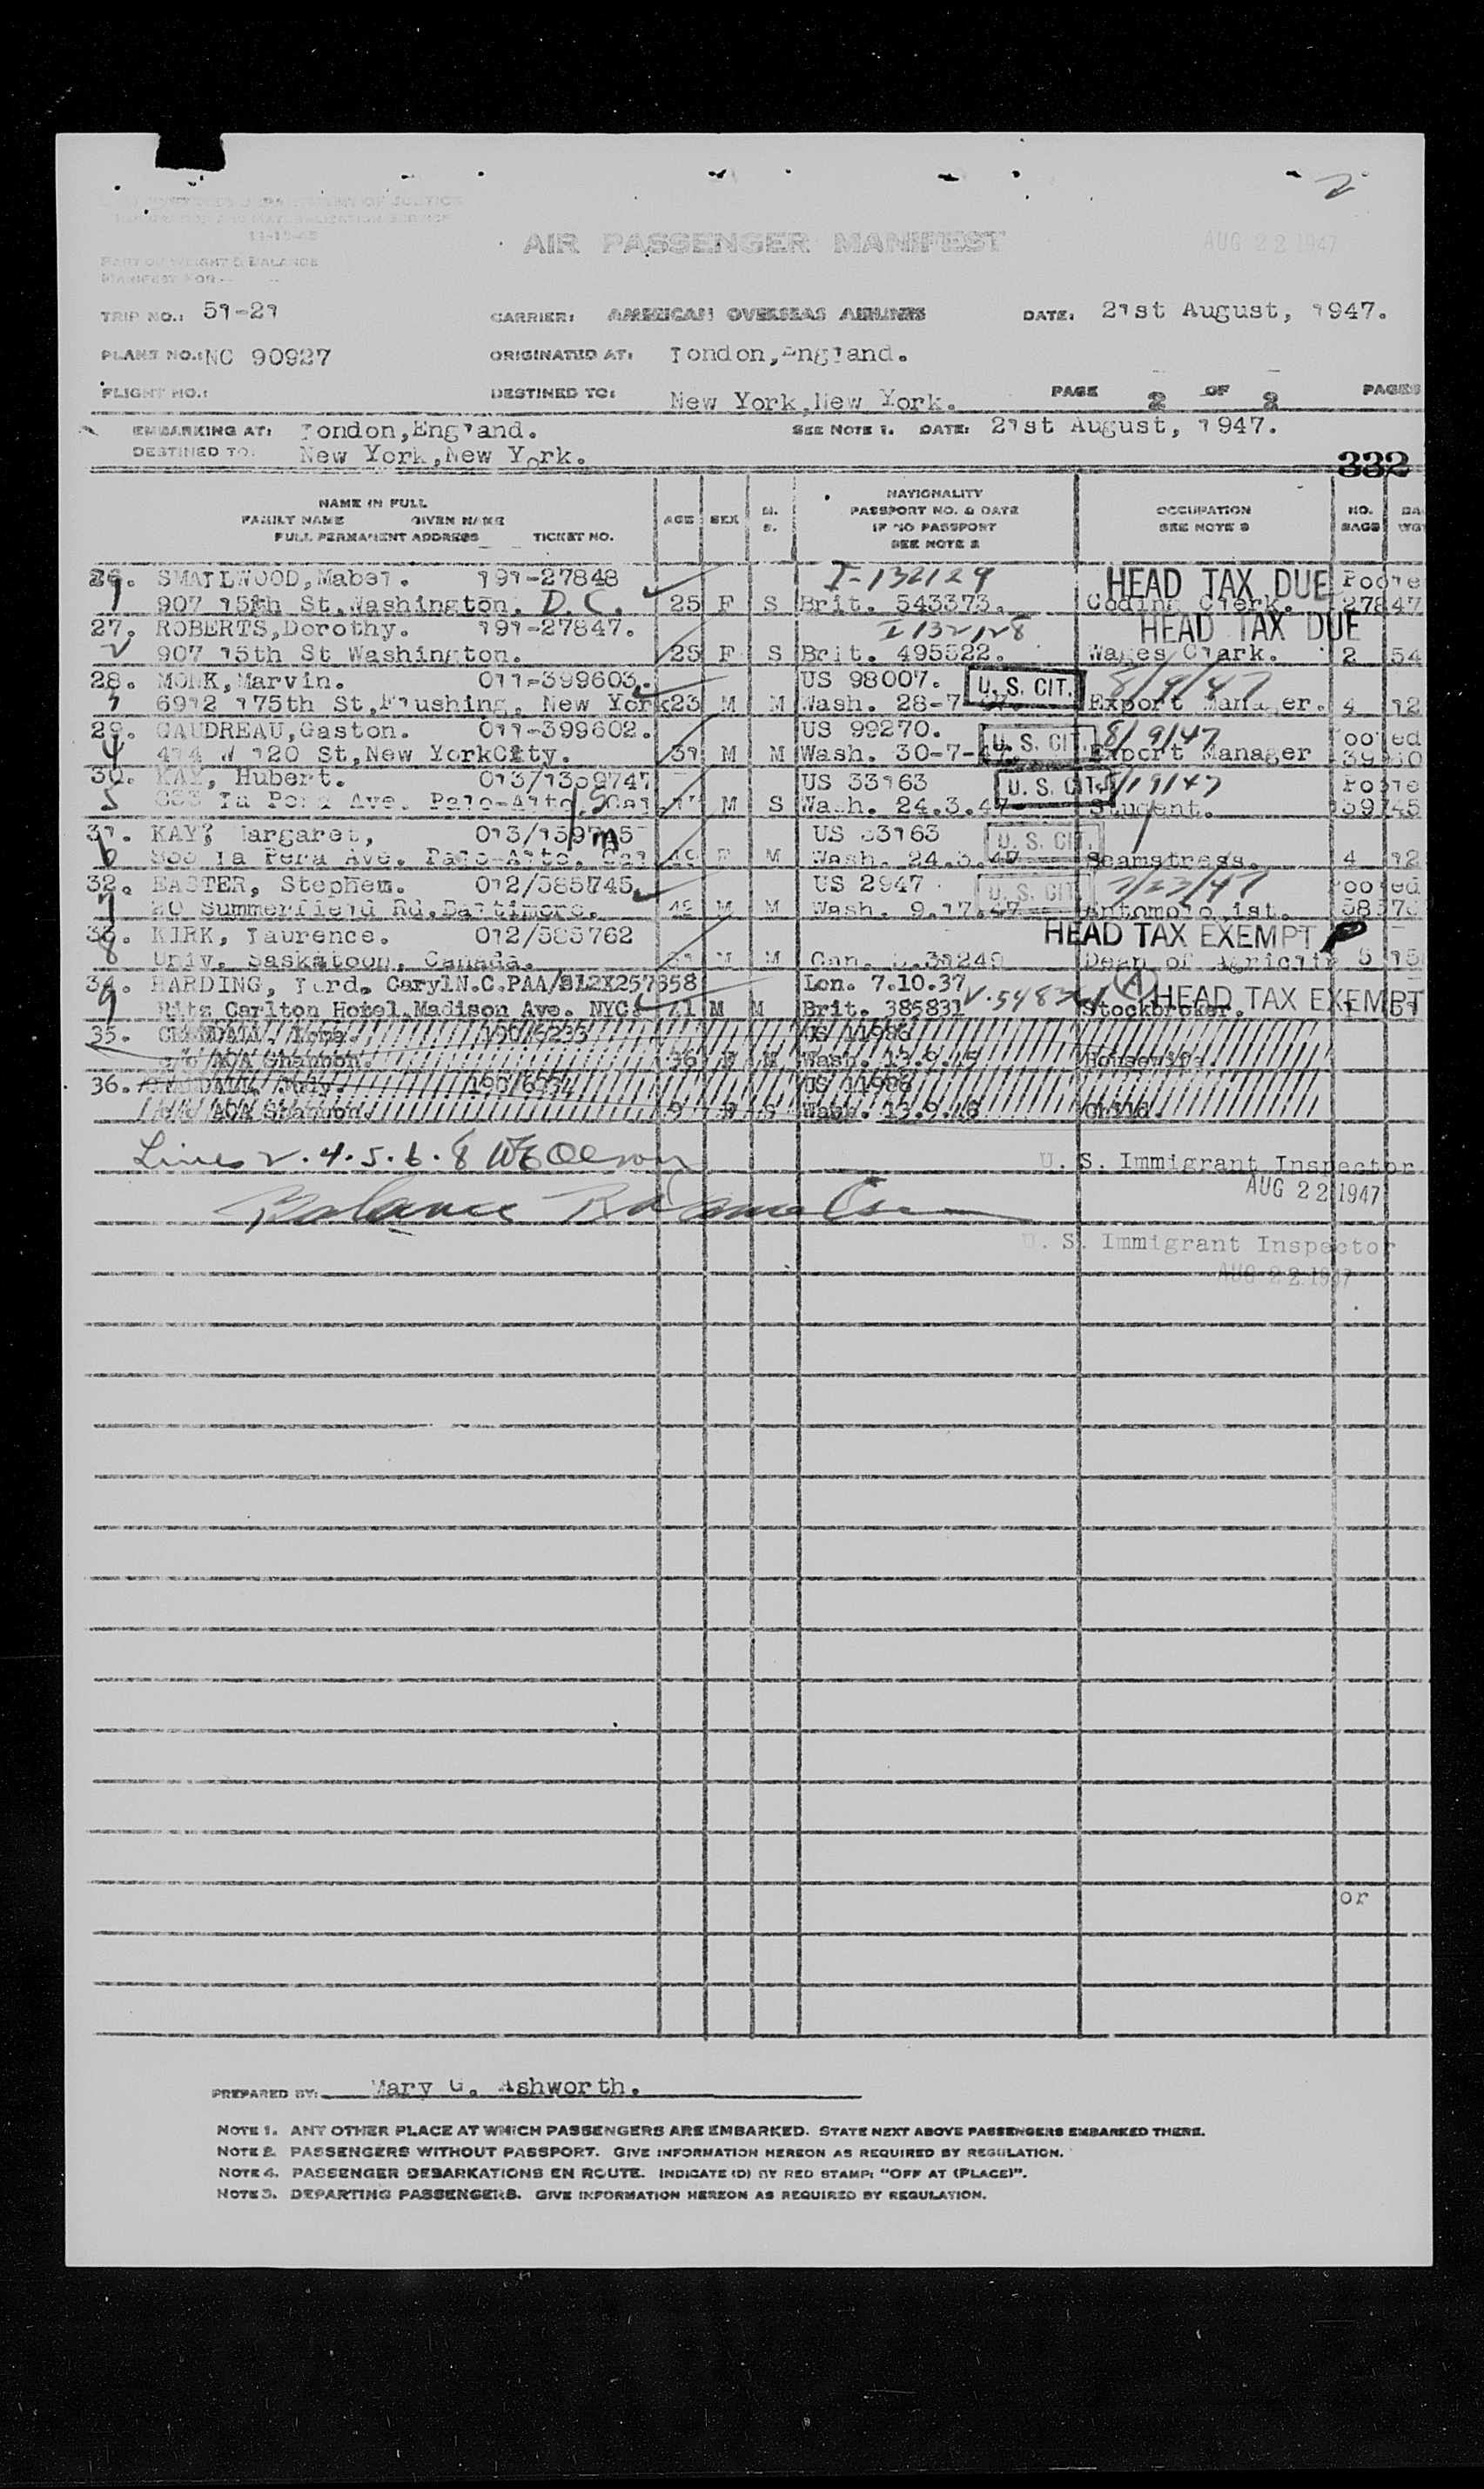 2
UNITED STATES DEPARTMENT OF JUSTICE
IMMIGRATION AND NATURALIZATION SERVICE
11-15-45
AIR PASSENGER MANIFEST
AUG 22 1947
PART OF WEIGHT & BALANCE
MANIFEST FOR
TRIP NO.: 51-21 CARRIER: AMERICAN OVERSEAS AIRLINES DATE: 21st August, 1947.
PLANE NO.: NC 90927 ORIGINATED AT: London, England.
FLIGHT NO.: DESTINED TO: New York, New York. PAGE 2 OF 2 PAGES
EMBARKING AT: London, England. SEE NOTE 1. DATE: 21st August, 1947.
DESTINED TO: New York, New York.
332
NAME IN FULL
FAMILY NAME GIVEN NAME
FULL PERMANENT ADDRESS TICKET NO.
AGE SEX M. S.
NATIONALITY
PASSPORT NO. & DATE
IF NO PASSPORT
SEE NOTE 2
OCCUPATION
SEE NOTE 3
NO. BAGS
26. SMALLWOOD, Mabel. 191-27848 I-132129 HEAD TAX DUE
1 907 15th St. Washington. D.C. 25 F S Brit. 543373. Coding Clerk. 27847
27. ROBERTS, Dorothy. 191-27847. I 132128 HEAD TAX DUE
2 907 15th St Washington. 25 F S Brit. 495522. Wages Clark. 2 54
28. MONK, Marvin. 011-399603. US 98007. U. S. CIT. 8/9/47
6912 175th St, Flushing, New York 23 M M Wash. 28-7- Export Manager. 4 12
29. GAUDREAU, Gaston. 011-399602. US 99270. U. S. CIT. 8/9/47
4 414 W 120 St, New YorkCity. 31 M M Wash. 30-7-47. Export Manager
30. KAY, Hubert. US 33163 U. S. CIT.
5 Palo-Alto, Cal M S Wash. 24.3.47 Student.
31. KAY, Margaret, US 33163 U. S. CIT.
6 La Pera Ave. Palo-Alto, Cal M Wash. 24.3.47 Seamstress. 4 12
32. EASTER, Stephen. 012/585745 US 2947 U. S. CIT
7 20 Summerfield Rd, Baltimore. 48 M M Wash.
33. KIRK, Laurence. 012/585762 HEAD TAX EXEMPT
8 Univ. Saskatoon, Canada. M M Can. Dean of 5
34. HARDING, Caryl N.C.PAA/BL2X257358 Lon. 7.10.37
9 Ritz Carlton Hotel, Madison Ave. NYC. 71 M M Brit. 385831 Stockbroker. HEAD TAX EXEMPT
35. US 11986
c/o AOA Shannon. 36 Wash. Housewife.
36. US 11986
c/o AOA Shannon. 9 S Wash. 13.9.46 Child.
Lines 2.4.5.6.8
U. S. Immigrant Inspector
AUG 22 1947
Balance
U. S. Immigrant Inspector
AUG 22 1947
or
PREPARED BY: Mary G. Ashworth.
NOTE 1. ANY OTHER PLACE AT WHICH PASSENGERS ARE EMBARKED. STATE NEXT ABOVE PASSENGERS EMBARKED THERE.
NOTE 2. PASSENGERS WITHOUT PASSPORT. GIVE INFORMATION HEREON AS REQUIRED BY REGULATION.
NOTE 4. PASSENGER DEBARKATIONS EN ROUTE. INDICATE (D) BY RED STAMP: "OFF AT (PLACE)".
NOTE 3. DEPARTING PASSENGERS. GIVE INFORMATION HEREON AS REQUIRED BY REGULATION.